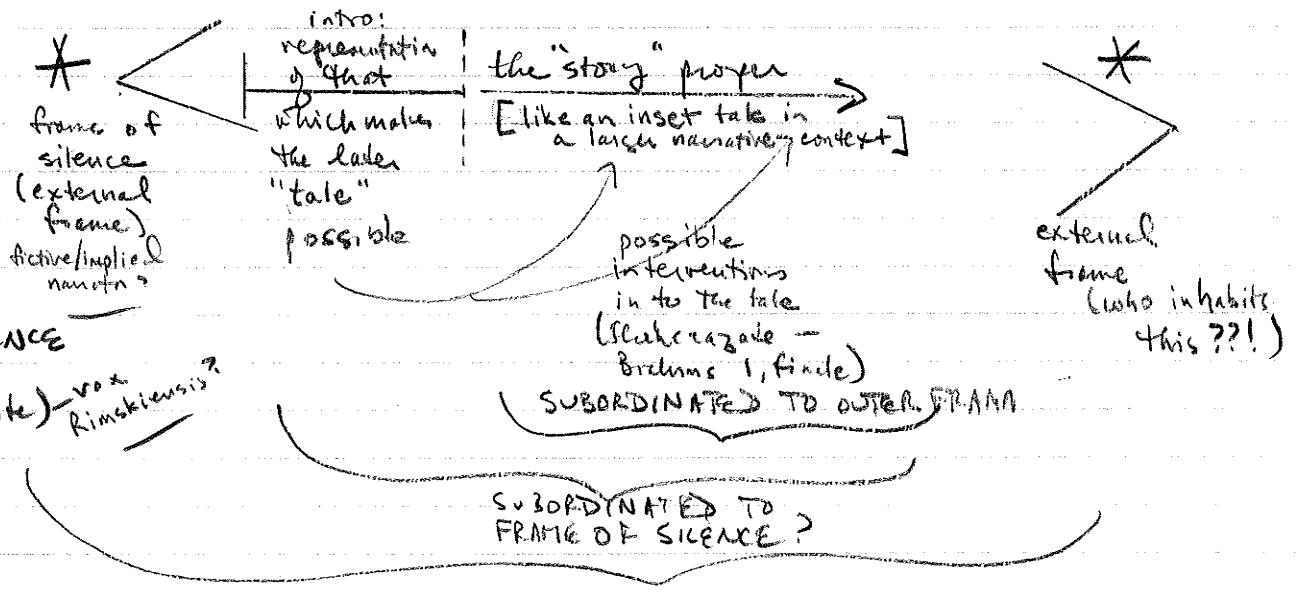 *
frame of
silence
(external
frame)
fictive/implied
narrator?
NCE
te) – vox
Rimskiensis?
intro:
representation
of that
which makes
the later
"tale"
possible
the "story" proper
[like an inset tale in
a larger narrative context]
possible
interventions
in to the tale
(Scheherazade –
Brahms 1, finale)
SUBORDINATED TO OUTER FRAME
SUBORDINATED TO
FRAME OF SILENCE?
*
external
frame
(who inhabits
this??!)